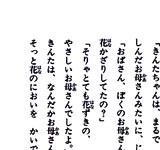 「きんたちゃんは、まるで
しんだお母さんみたいに、じ
「おばさん、ぼくのお母さん
花かざりしてたの?」
「そりゃとても花ずきの、
やさしいお母さんでしたよ。
きんたは、なんだかお母さん
そっと花のにおいを　かいで